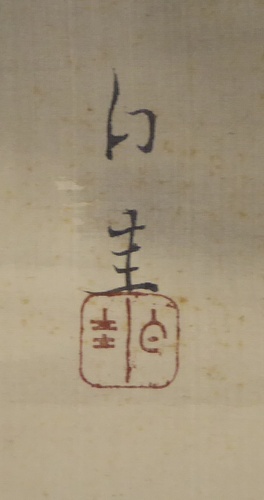 白
圭
白圭